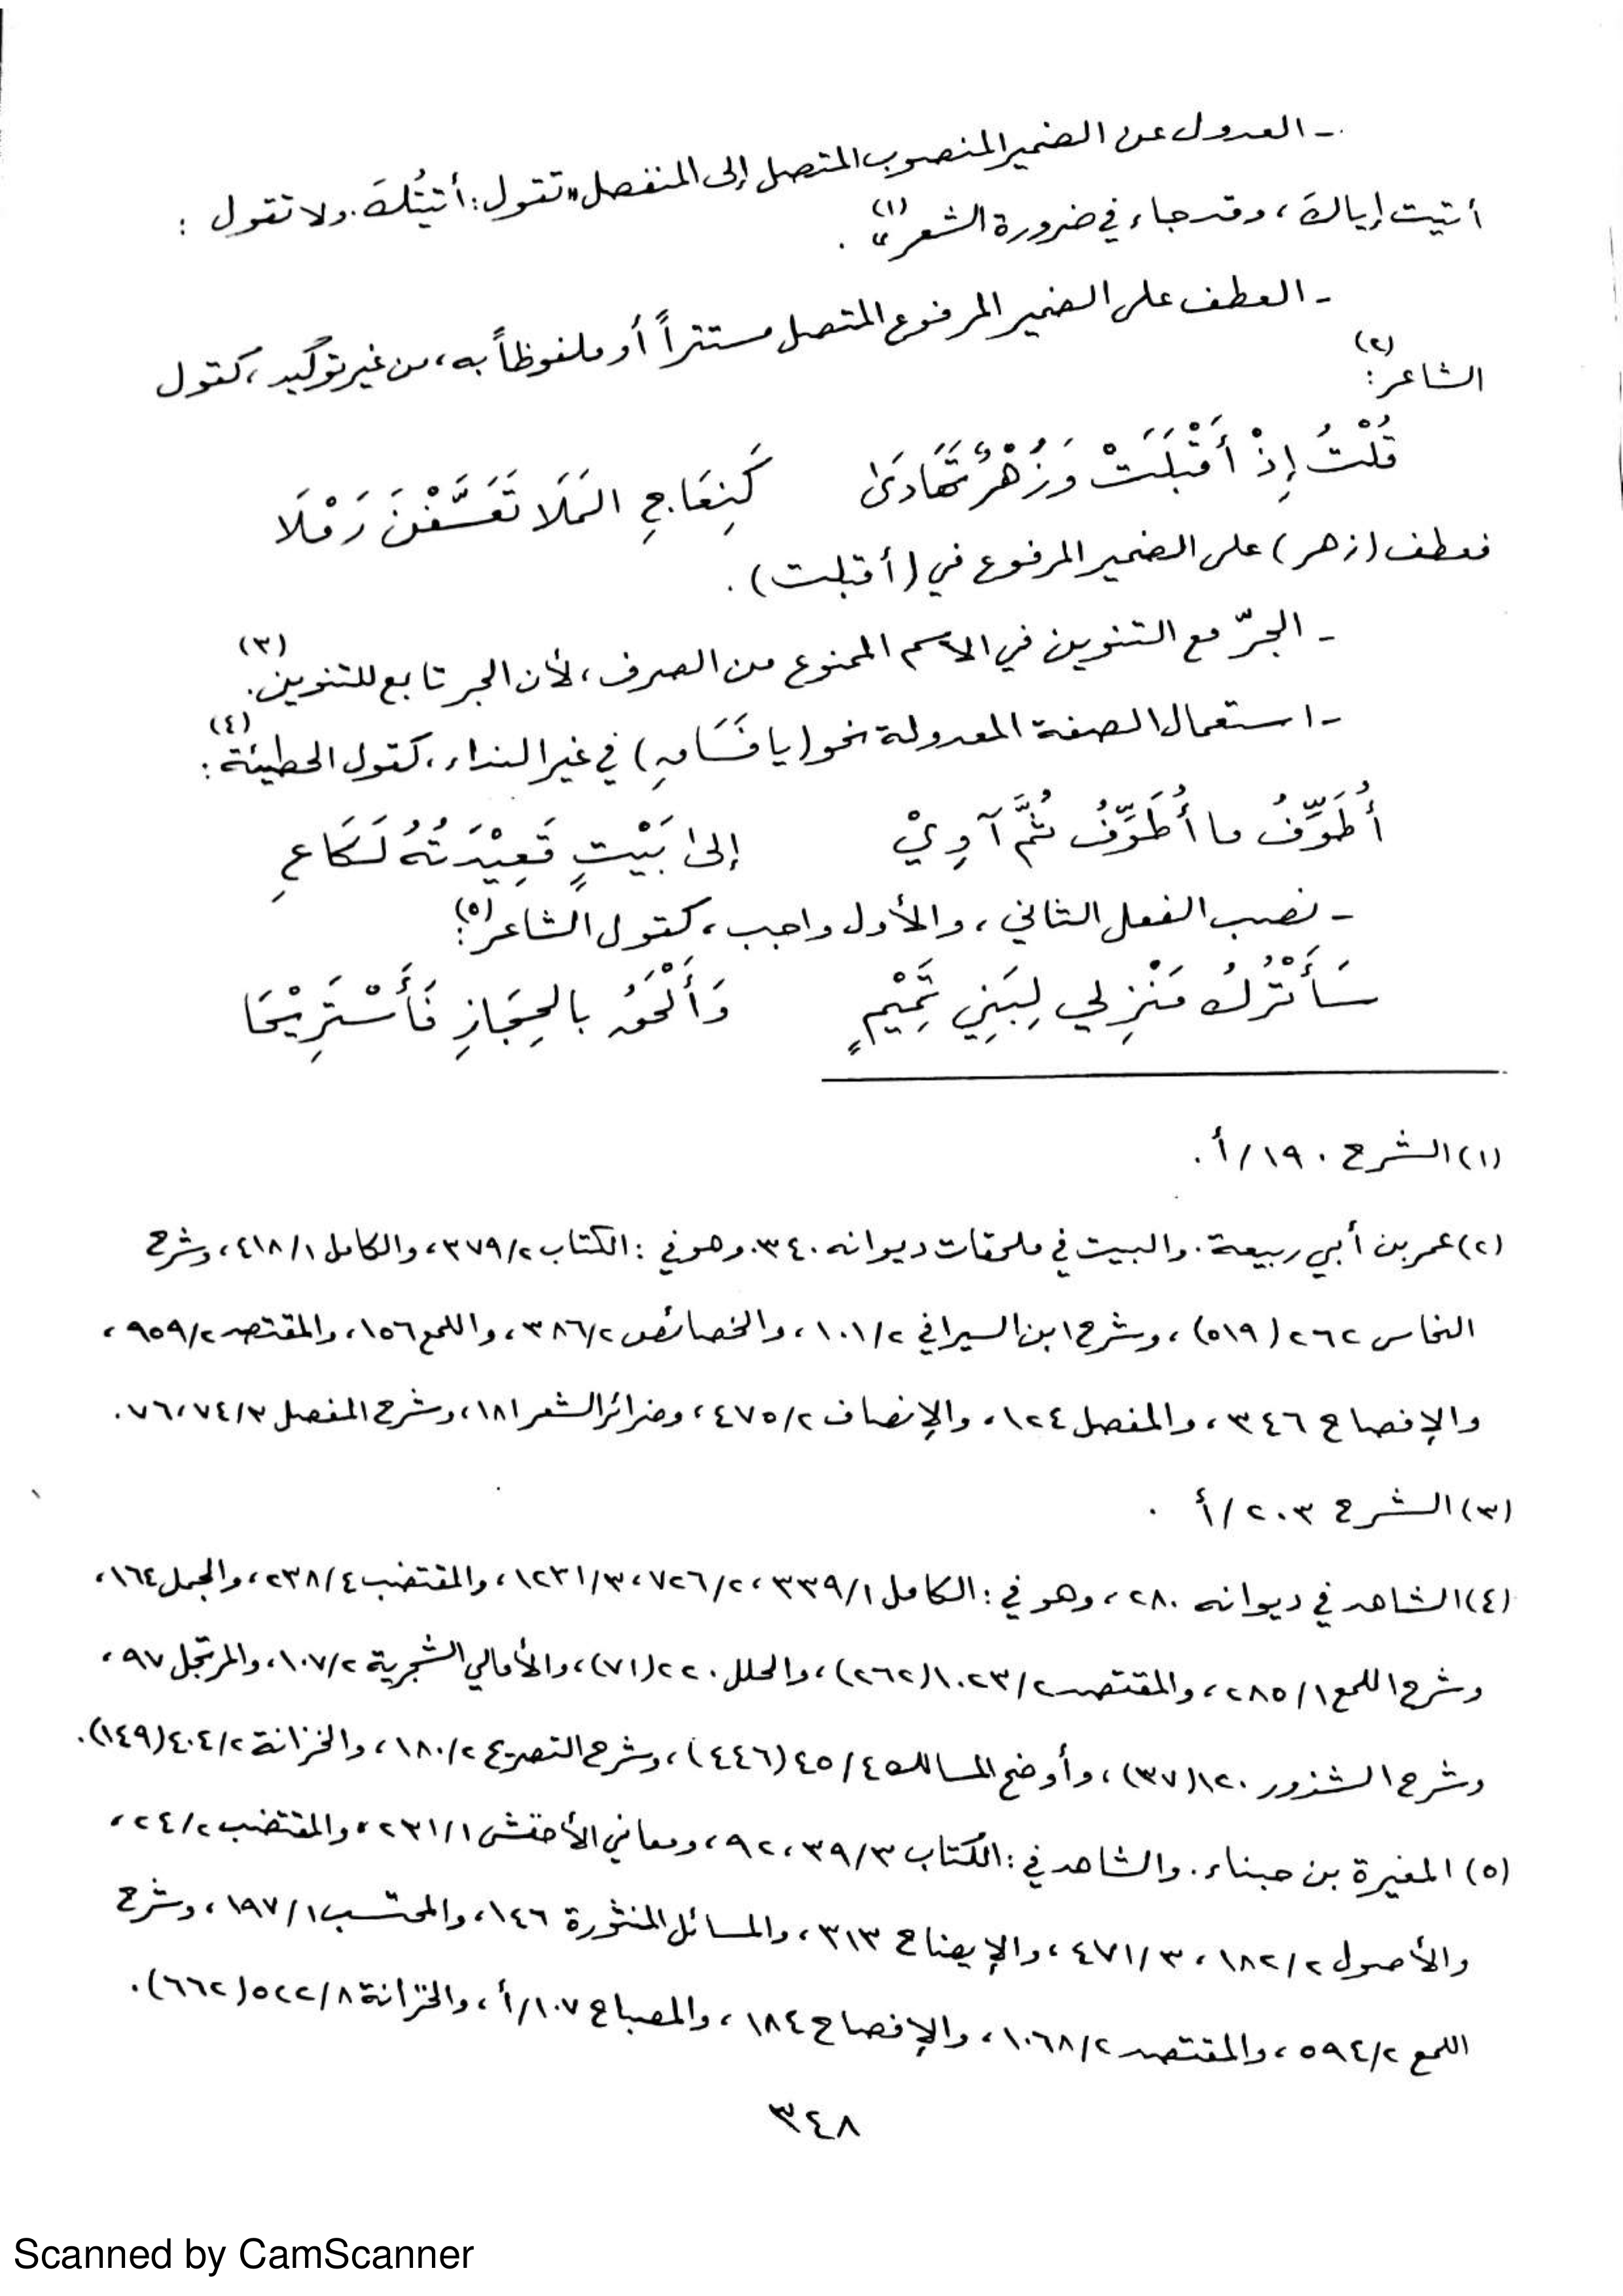 - العدول عن الضمير المنصوب المتصل إلى المنفصل «تقول: أتيتُكَ. ولا تقول :
أتيت إياكَ، وقد جاء في ضرورة الشعر»(١) .
- العطف على الضمير المرفوع المتصل مستتراً أو ملفوظاً به، من غير توكيد، كقول
الشاعر(٢):
قُلْتُ إِذْ أَقْبَلَتْ وَزُهْرٌ تَهَادَىٰ كَنِعَاجِ المَلَا تَعَسَّفْنَ رَمْلَا
فعطف (زهر) على الضمير المرفوع في (أقبلت) .
- الجرّ مع التنوين في الاسم الممنوع من الصرف، لأن الجر تابع للتنوين(٣).
- استعمال الصفة المعدولة نحو (يا فَسَاقِ) في غير النداء، كقول الحطيئة(٤):
أُطَوِّفُ ما أُطَوِّفُ ثُمَّ آوِيْ إلىٰ بَيْتٍ قَعِيْدَتُهُ لَكَاعِ
- نصب الفعل الثاني، والأول واجب، كقول الشاعر(٥):
سَأَتْرُكُ مَنْزِلي لِبَنِي تَمِيْمٍ وَأَلْحَقُ بالحِجَازِ فَأَسْتَرِيْحَا
(١) الشرح ١٩٠/أ .
(٢) عمر بن أبي ربيعة. والبيت في ملحقات ديوانه ٣٤٠. وهو في : الكتاب ٣٧٩/٢، والكامل ٤١٨/١، وشرح
النحاس ٢٦٢ (٥١٩)، وشرح ابن السيرافي ١٠١/٢، والخصائص ٣٨٦/٢، واللمع ١٥٦، والمقتصد ٩٥٩/٢،
والإفصاح ٣٤٦، والمفصل ١٢٤، والإنصاف ٤٧٥/٢، وضرائر الشعر ١٨١، وشرح المفصل ٧٤/٣، ٧٦.
(٣) الشرح ٢٠٣/أ .
(٤) الشاهد في ديوانه ٢٨٠، وهو في : الكامل ٣٣٩/١، ٧٢٦/٢، ١٢٣١/٣، والمقتضب ٢٣٨/٤، والجمل ١٦٤،
وشرح اللمع ٢٨٥/١، والمقتصد ١٠٢٣/٢(٢٦٢)، والحلل ٢٢٠(٧١)، والأمالي الشجرية ١٠٧/٢، والمرتجل ٩٧،
وشرح الشذور ١٢٠(٣٧)، وأوضح المسالك ٤٥/٤(٤٤٦)، وشرح التصريح ١٨٠/٢، والخزانة ٤٠٤/٢(١٤٩).
(٥) المغيرة بن حبناء. والشاهد في : الكتاب ٣٩/٣، ٩٢، ومعاني الأخفش ٢٣١/١، والمقتضب ٢٤/٢،
والأصول ١٨٢/٢، ٤٧١/٣، والإيضاح ٣١٣، والمسائل المنثورة ١٤٦، والمحتسب ١٩٧/١، وشرح
اللمع ٥٩٤/٢، والمقتصد ١٠٦٨/٢، والإفصاح ١٨٤، والمصباح ١٠٧/أ، والخزانة ٥٢٢/٨(٦٦٢).
٣٤٨
Scanned by CamScanner